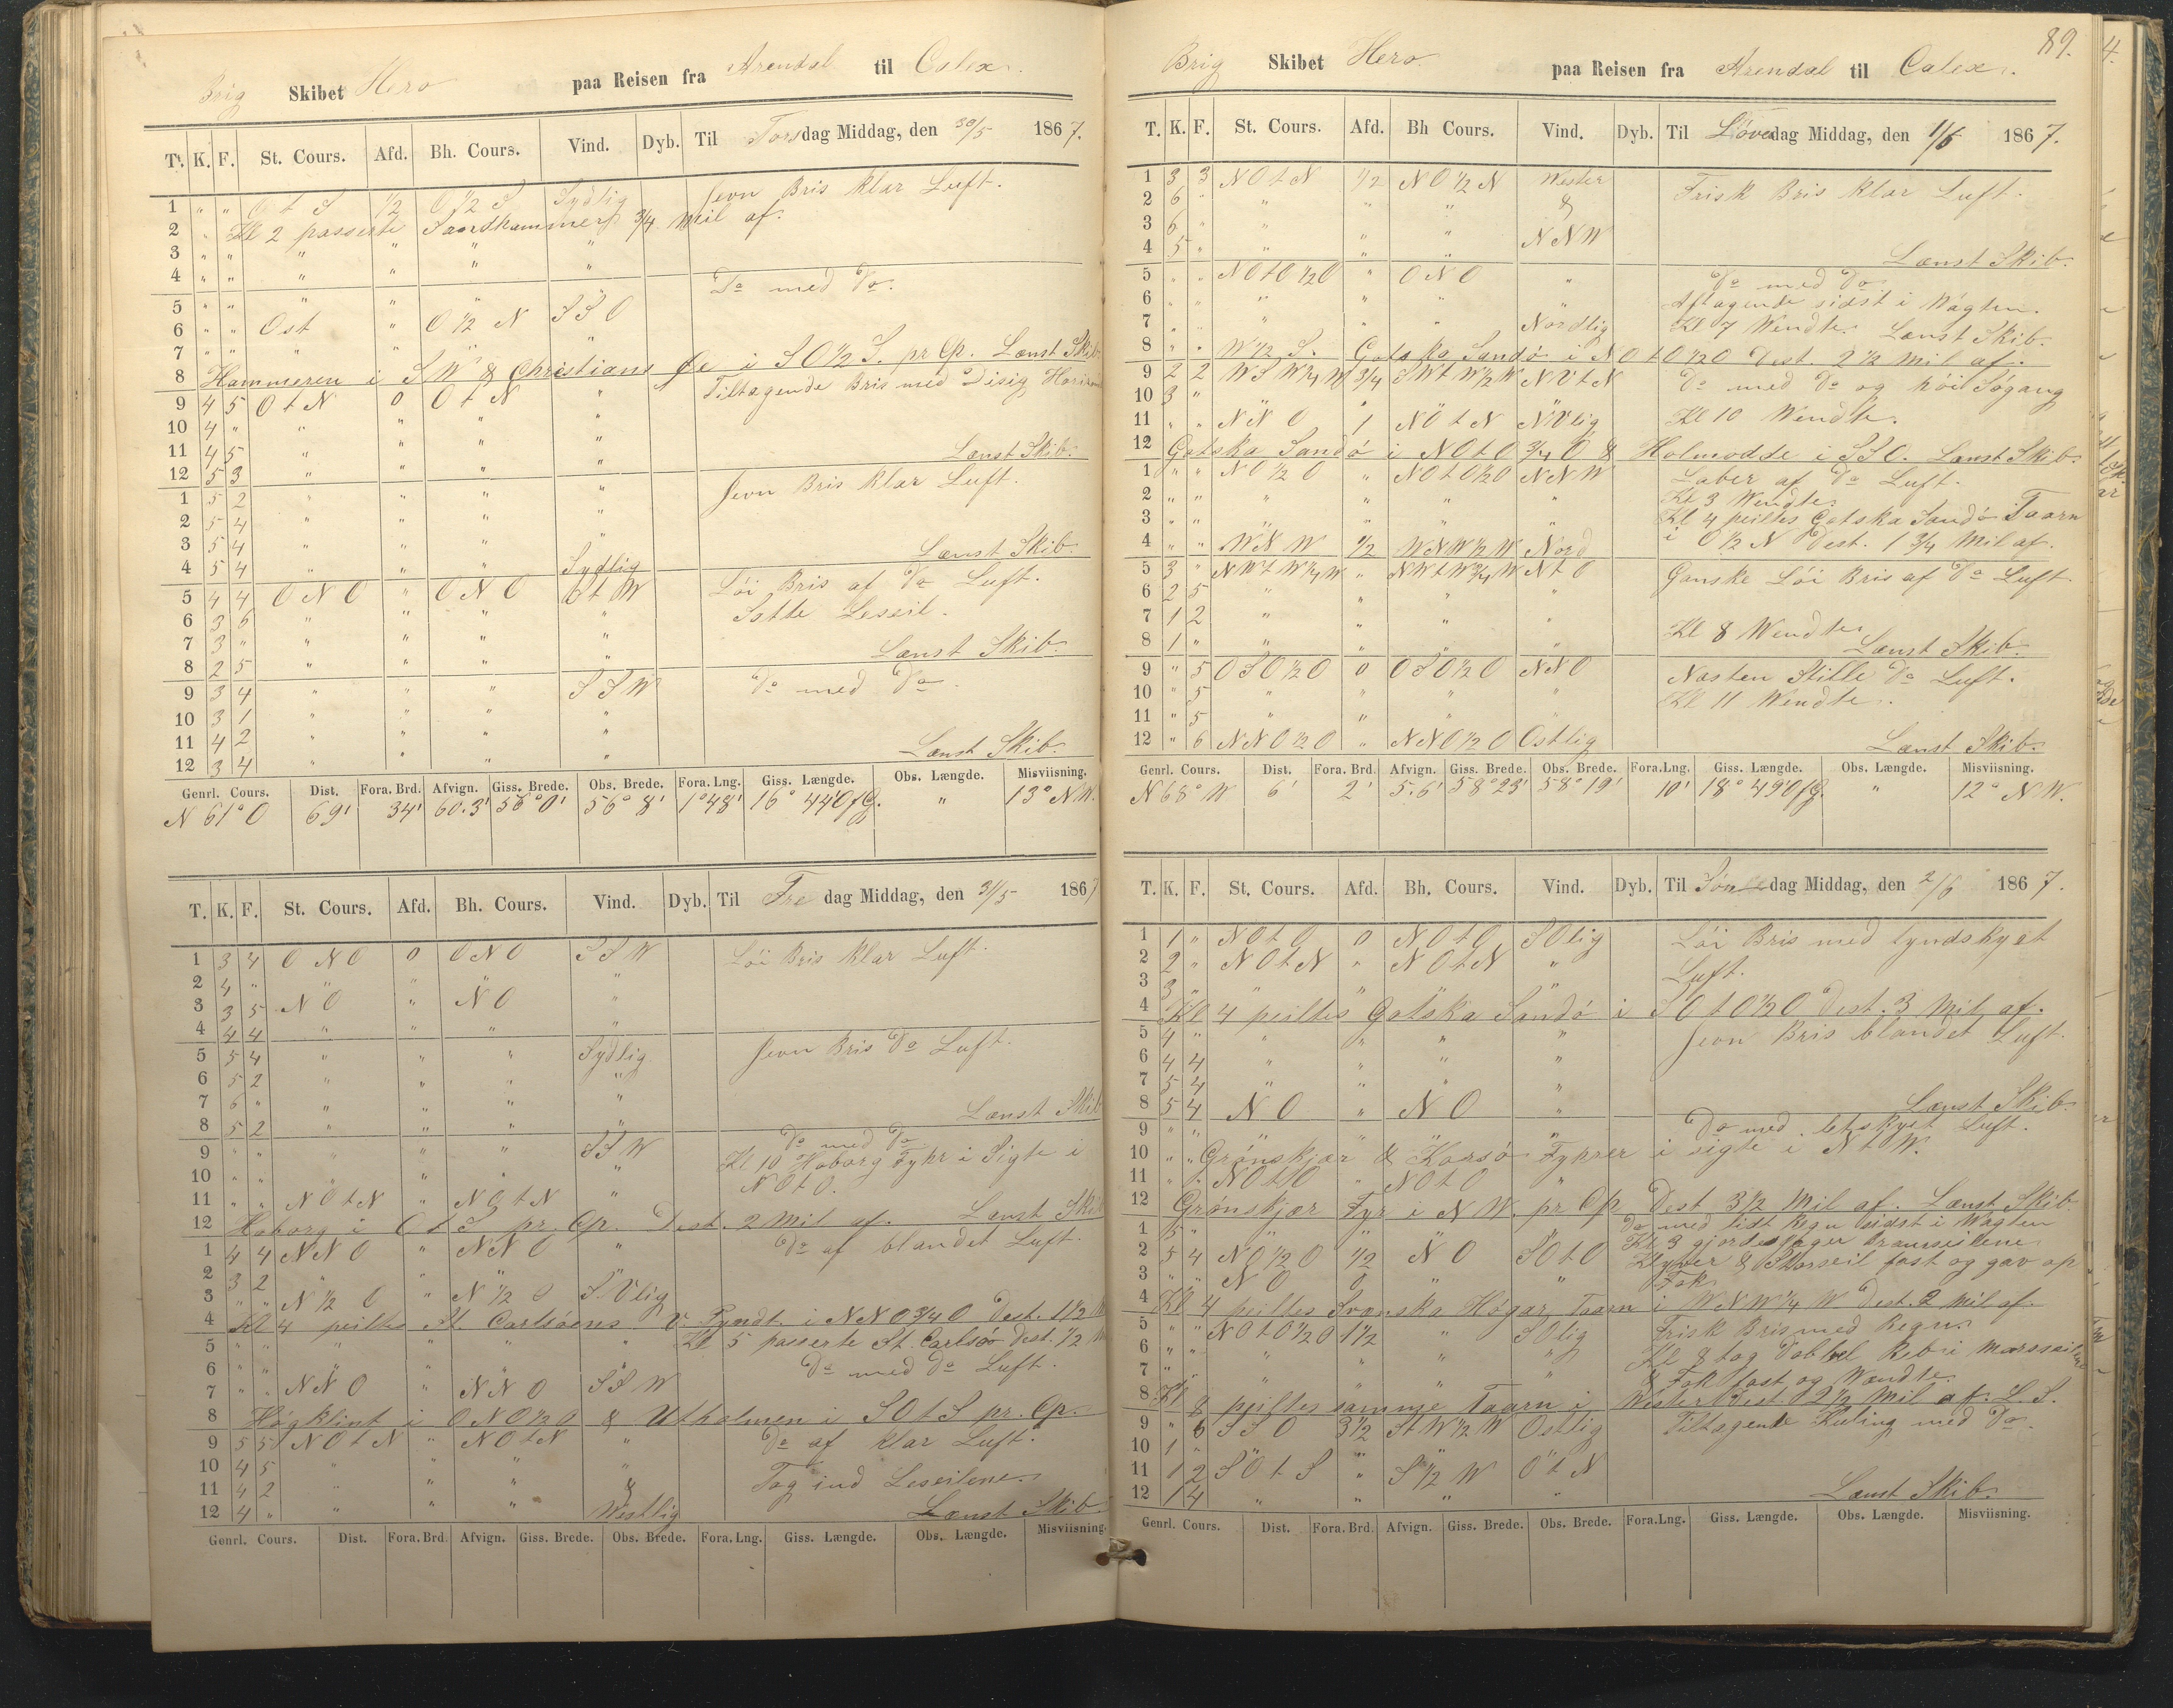 Brig Skibet Hero paa Reisen fra Arendal til Calex.
T. K. F. St. Cours. Afd. Bh. Cours. Vind. Dyb. Til Torsdag Middag, den 30/5 1867.
1 " " O t S 1/2 O 1/2 S Sydlig Jevn Bris klar Luft.
2 " Kl 2 passerte Sandhammer 3/4 Mil af.
3 " " " " " "
4 " " " " " "
5 " " " " " " Do med Do.
6 " " Ost " O 1/2 N S S O
7 " " " " " "
8 Hammeren i S W & Christians Øe i S O 1/2 S. pr Cp. Lænst Skib
9 4 5 O t N 0 O t N " Tiltagende Bris med Disig Horizon
10 4 " " " " "
11 4 5 " " " "
12 5 3 " " " " Lænst Skib.
1 5 2 " " " " Jevn Bris klar Luft.
2 5 4 " " " "
3 5 4 " " " "
4 5 4 " " " Sydlig Lænst Skib.
5 4 4 O N O " O N O t W Löi Bris af Do Luft.
6 3 6 " " " " Satte Leseil.
7 3 " " " " "
8 2 5 " " " " Lænst Skib.
9 3 4 " " " S S W Do med Do.
10 3 1 " " " "
11 4 2 " " " "
12 3 4 " " " " Lænst Skib.
Genrl. Cours. Dist. Fora. Brd. Afvign. Giss. Brede. Obs. Brede. Fora. Lng. Giss. Længde. Obs. Længde. Misviisning.
N 61° O 69' 34' 60.3' 56° 0' 56° 8' 1° 48' 16° 44' O f G. " 13° N W.
T. K. F. St. Cours. Afd. Bh. Cours. Vind. Dyb. Til Fredag Middag, den 31/5 1867
1 3 4 O N O 0 O N O S S W Löi Bris klar Luft.
2 4 " " " " "
3 3 5 N O " N O "
4 4 4 " " " "
5 5 4 " " " Sydlig. Jevn Bris Do Luft.
6 5 2 " " " "
7 6 " " " " "
8 5 2 " " " " Lænst Skib
9 " " " " " S S W Do med Do
10 " " " " " " Kl 10 Hoborg Fyhr i Sigte i
11 " " N O t N " N O t N " N O t O.
12 Hoborg i O t S pr. Cp. Dest. 2 Mil af. Lænst Skib
1 4 4 N N O " N N O " Do af blandet Luft.
2 3 2 " " " "
3 " " N 1/2 O " N 1/2 O S.V lig
4 Kl 4 peiltes St. Carlsöens V. Pyndt. i N N O 3/4 O Dest. 1 1/2 M
5 " " " " " " Kl 5 passerte St. Carlsö Dest. 1/2 M
6 " " " " " " Do med Do Luft.
7 " " N N O " N N O S S W
8 Högklint i O N O 1/2 O & Utholmen i S O t S pr. Cp.
9 5 5 N O t N " N O t N " Do af klar Luft.
10 4 5 " " " "
11 4 2 " " " & Tog ind Leseilene.
12 4 " " " " Westlig Lænst Skib.
Genrl. Cours. Dist. Fora. Brd. Afvign. Giss. Brede. Obs. Brede. Fora. Lng. Giss. Længde. Obs. Længde. Misviisning.
89.
Brig Skibet Hero paa Reisen fra Arendal til Calex.
T. K. F. St. Cours. Afd. Bh Cours. Vind. Dyb. Til Löverdag Middag, den 1/6 1867.
1 3 3 N O t N 1/2 N O 1/2 N Wester Frisk Bris klar Luft.
2 6 " " " " &
3 6 " " " " N N W
4 5 " " " " Lænst Skib.
5 " " N O t O 1/2 O " O N O " Do med Do
6 " " " " " Aftagende sidst i Vagten.
7 " " " " " Nordlig Kl 7 Wendte. Lænst Skib.
8 " " W 1/2 S. Gotska Sandö i N O t O 1/2 O Dest. 2 1/2 Mil af.
9 2 2 W S W 1/4 W 3/4 S W t W 1/2 W N V t N Do med Do og höi Sögang
10 3 " " " "
11 " " N N O 1 N O t N N V lig Kl 10 Wendte.
12 Gotska Sandö i N O t O 3/4 O & Holmodde i S S O. Lænst Skib.
1 " " N O 1/2 O " N O t O 1/2 O N N W Laber af Do Luft.
2 " " " " " " Kl 3 Wendte
3 " " " " " " Kl 4 peiltes Gotska Sandö Taarn
4 " " W N W 1/2 W N W 1/2 W Nord i O 1/2 N Dest. 1 3/4 Mil af.
5 3 " N W t W 1/4 W " N W t W 3/4 W N t O Ganske Löi Bris af Do Luft.
6 2 5 " " " "
7 1 2 " " " "
8 1 " " " " Kl 8 Wendte Lænst Skib.
9 " 5 O S O 1/2 O 0 O S O 1/2 O N N O Næsten Stille Do Luft.
10 " 5 " " " " Kl 11 Wendte.
11 " 5 " " " "
12 " 6 N N O 1/2 O " N N O 1/2 O Ostlig Lænst Skib.
Genrl. Cours. Dist. Fora. Brd. Afvign. Giss. Brede. Obs. Brede. Fora. Lng. Giss. Længde. Obs. Længde. Misviisning.
N 68° W 6' 2' 5.6' 58° 23' 58° 19' 10' 18° 49' O f G. " 12° N W.
T. K. F. St. Cours. Afd. Bh. Cours. Vind. Dyb. Til Söndag Middag, den 2/6 1867.
1 1 " N O t O 0 N O t O S O lig Löi Bris med tyndskyet
2 2 " N O t N " N O t N " Luft.
3 3 " " " " "
4 Kl 4 peiltes Gotska Sandö i S O t O 1/2 O Dest. 3 Mil af.
5 4 " " " " " Jevn Bris blandet Luft.
6 4 4 " " " "
7 5 4 " " " "
8 5 4 N O " N O " Lænst Skib.
9 " " " " " " Do med letskyet Luft.
10 " " Grönskjær & Korsö Fyhrer i sigte i N t W.
11 " " N O t O " N O t O "
12 Grönskjær Fyr i N W. pr Cp Dest 3 1/2 Mil af. Lænst Skib.
1 5 " " " " " Do med lidt Regn sidst i Vagten
2 5 4 N O 1/2 O 1/2 N O S O t O Kl 3 gjordes Bramseilene
3 " " N O 0 " " Klyver & Storseil fast og gav op Fok
4 Kl 4 peiltes Svenska Högar Taarn i W N W 1/4 W Dest. 2 Mil af.
5 " " N O t O 1/2 O 1 1/2 " S O lig Frisk Bris med Regn.
6 " " " " " " Kl 8 tog Dobbel Reb i Marsseilene
7 " " " " " " & Fok fast og Wendte
8 Kl 8 peiltes samme Taarn i Wester Dest. 2 1/2 Mil af. L. S.
9 " 6 S S O 3 1/2 S t W 1/2 W Ostlig Tiltagende Kuling med Do.
10 1 "
11 1 2 S O t S " S 1/2 W O t N
12 1 4 " " " " Lænst Skib.
Genrl. Cours. Dist. Fora. Brd. Afvign. Giss. Brede. Obs. Brede. Fora. Lng. Giss. Længde. Obs. Længde. Misviisning.